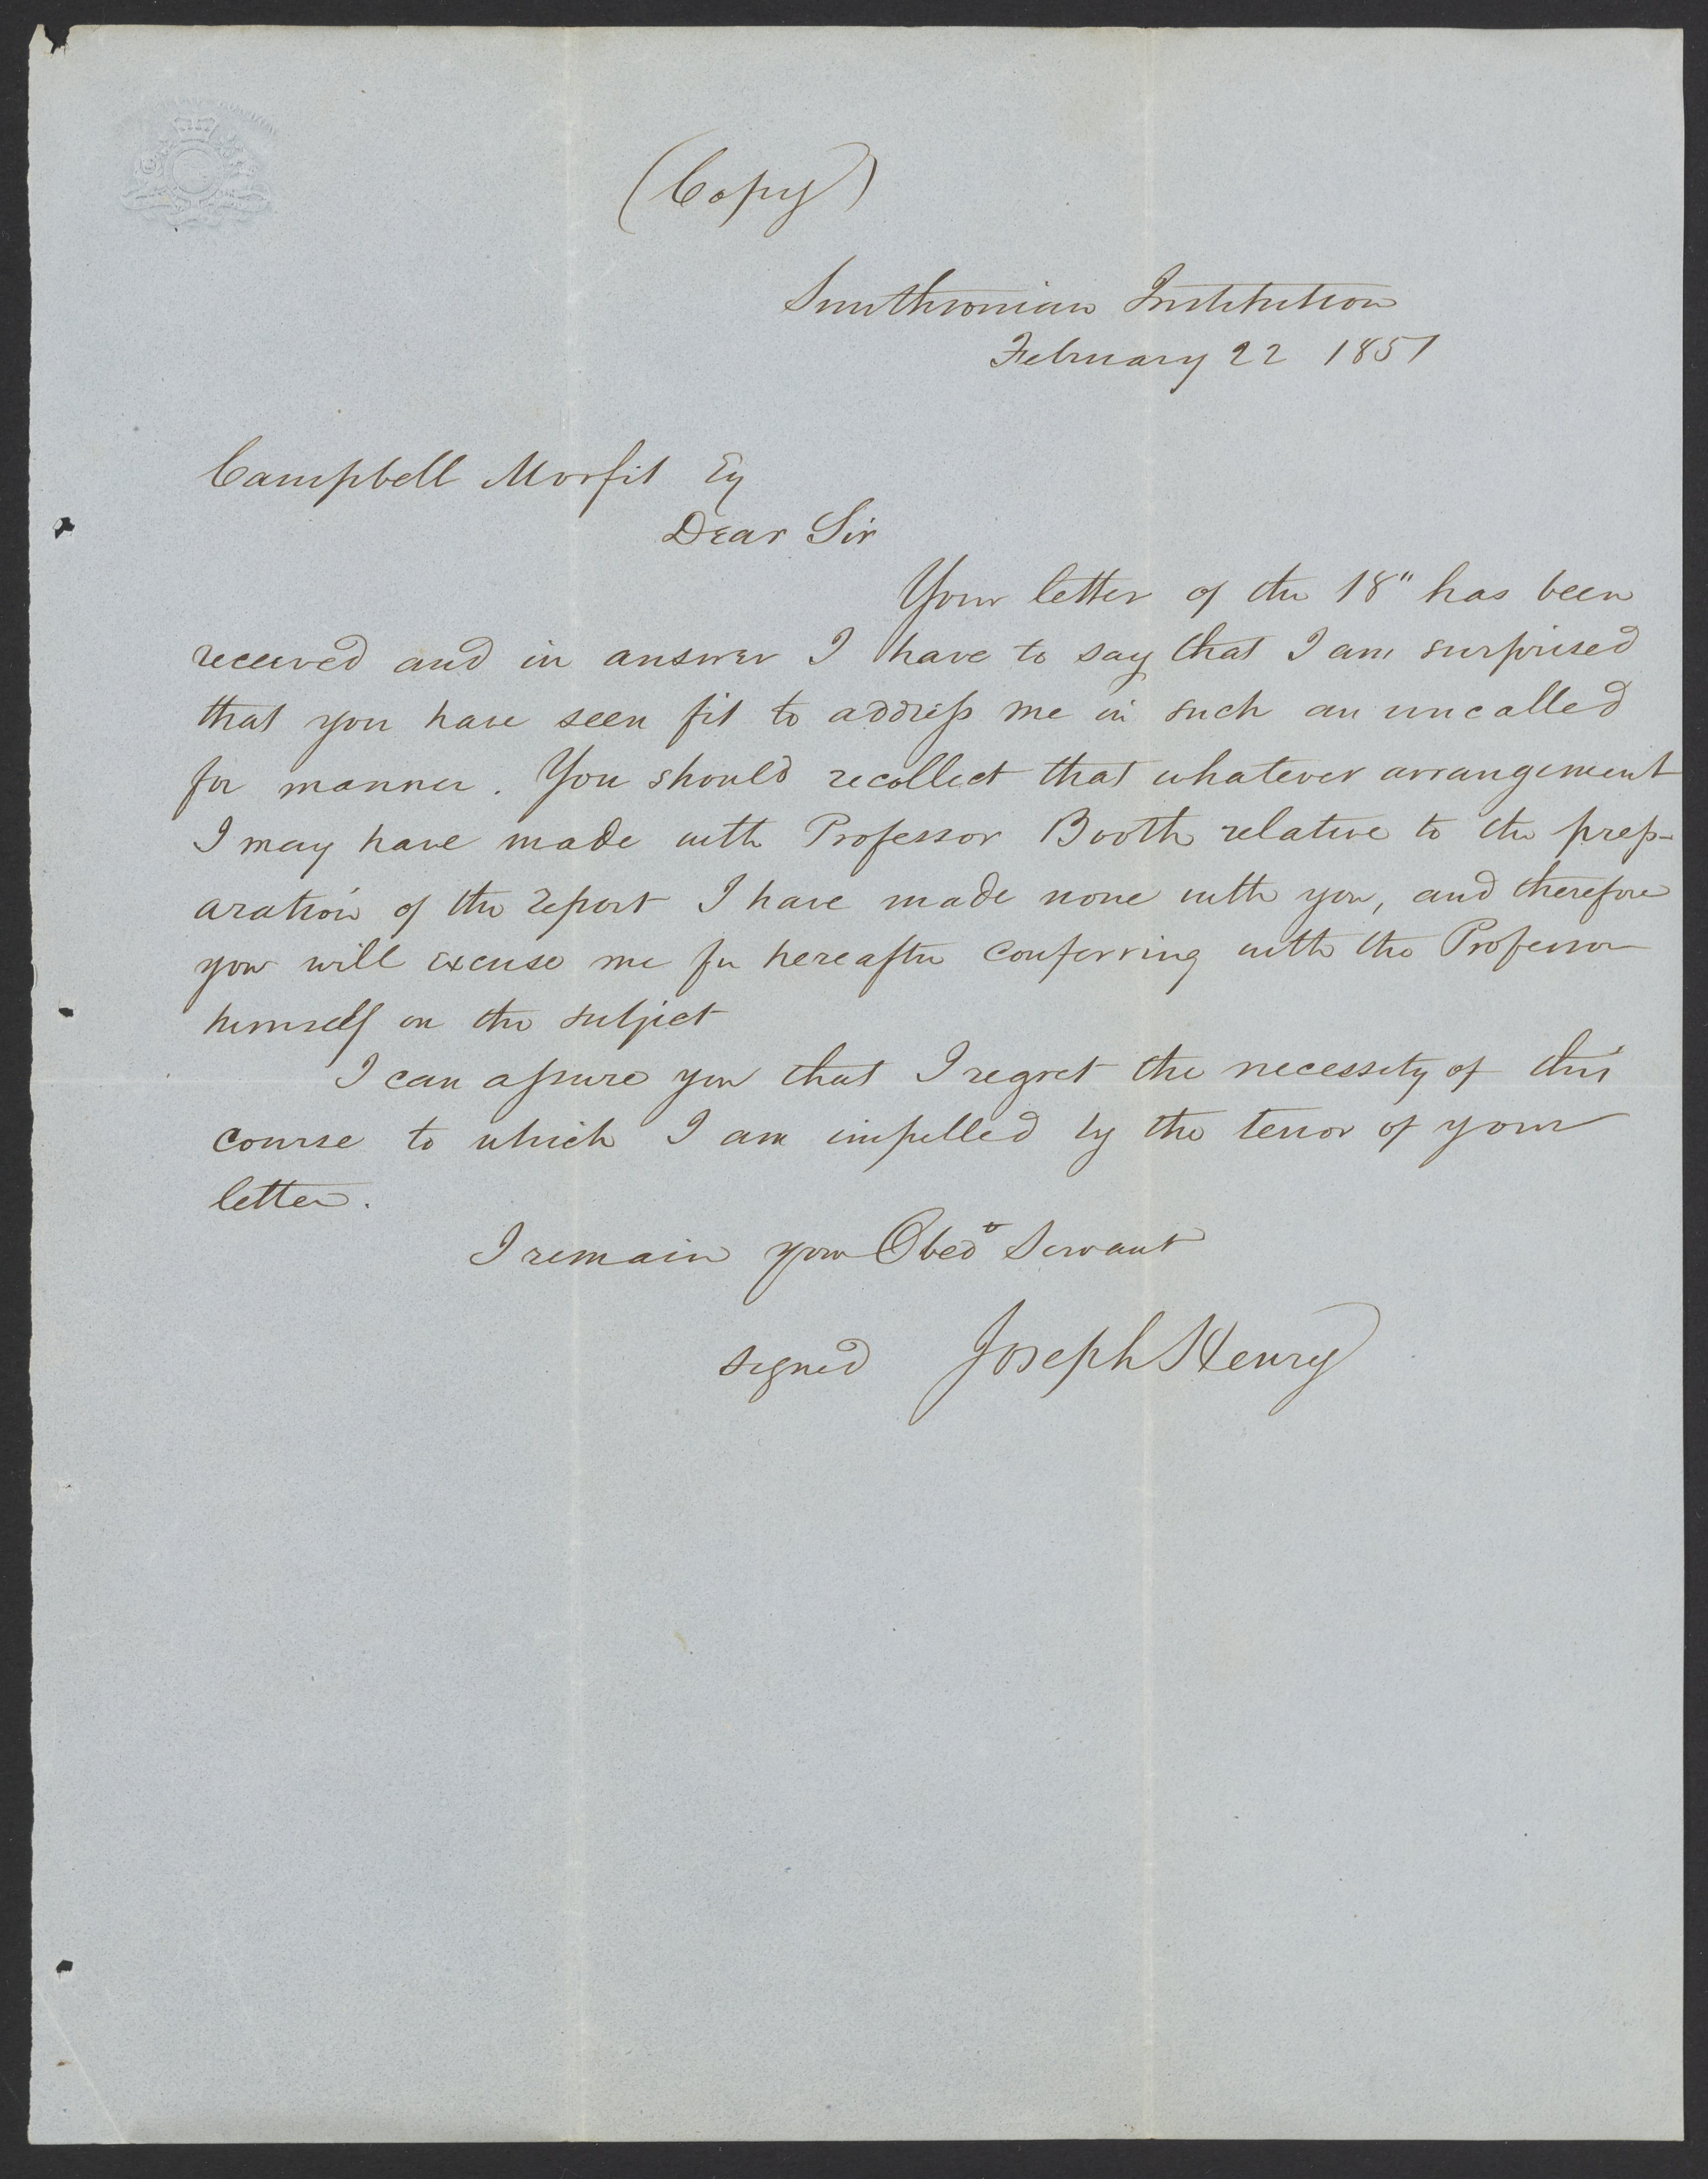 (Copy)
Smithsonian Institution
February 22 1851
Campbell Morfit Esq
Dear Sir
Your letter of the 18" has been
received and in answer I have to say that I am surprised
that you have seen fit to address me in such an uncalled
for manner. You should recollect that whatever arrangement
I may have made with Professor Booth relative to the prep-
aration of the report I have made none with you, and therefore
you will excuse me for hereafter conferring with the Professor
himself on the subject
I can assure you that I regret the necessity of this
course to which I am impelled by the tenor of your
letter.
I remain your Obedt Servant
signed Joseph Henry